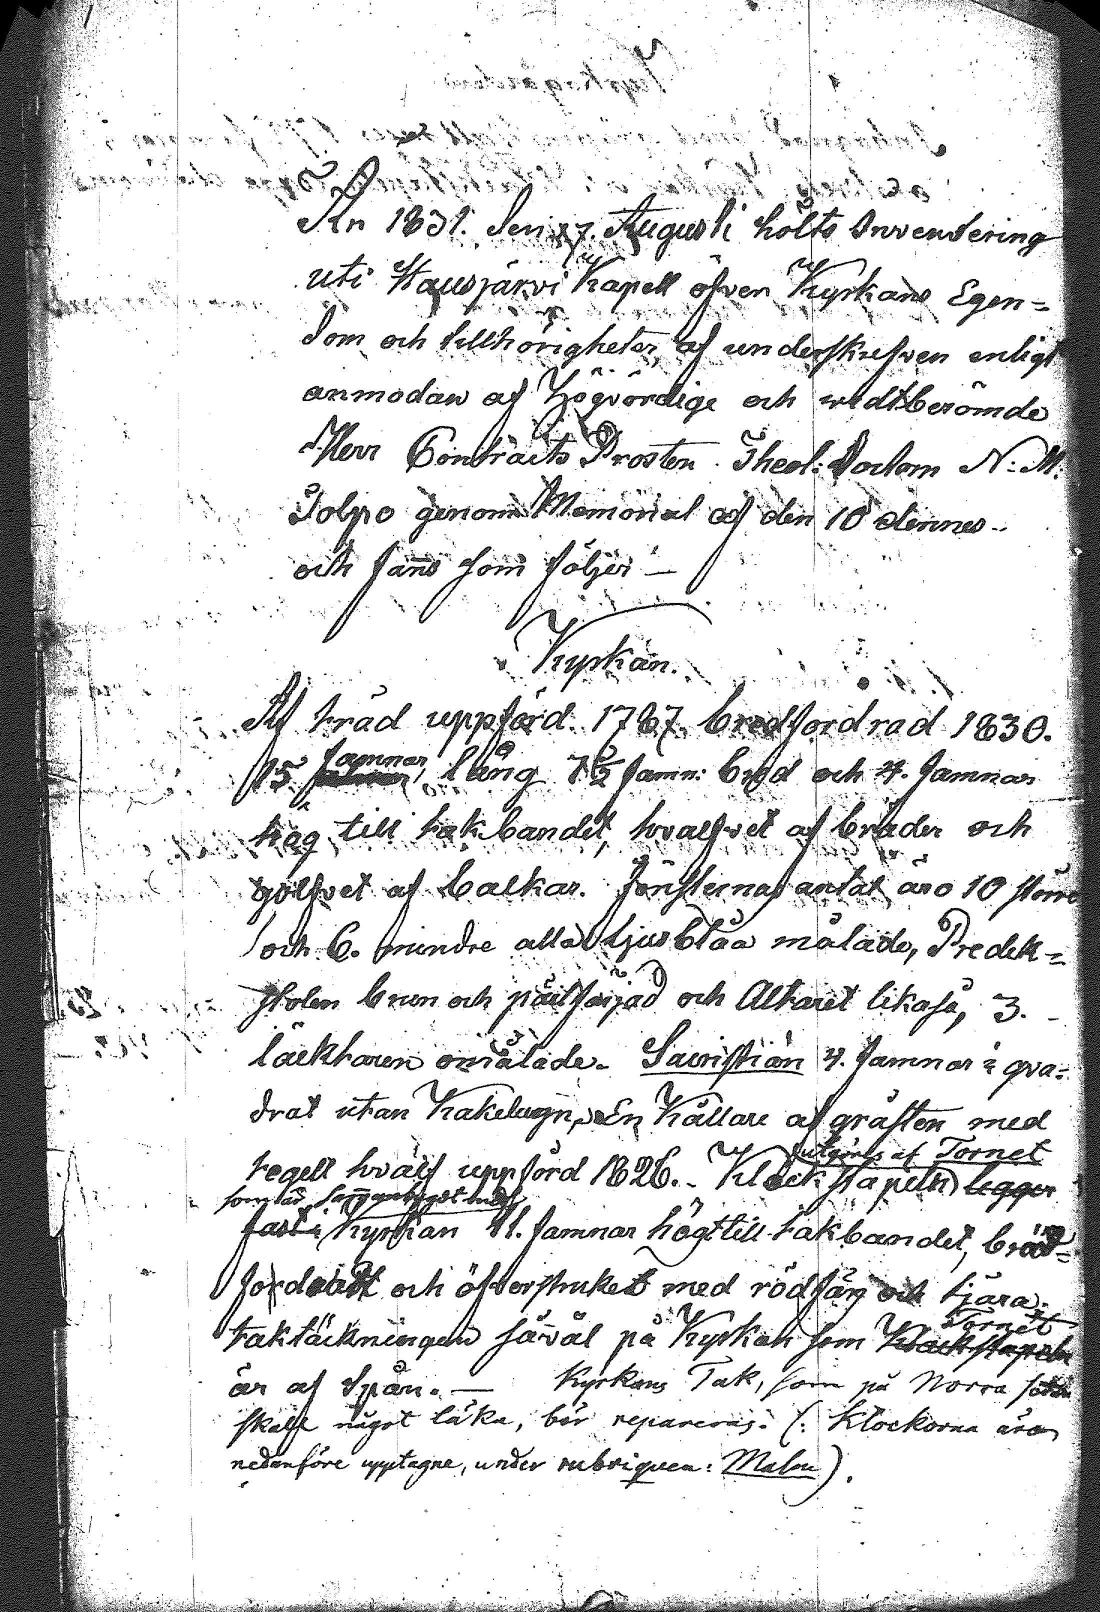 År 1831. den 17. Augusti hölts Inventering
uti Hausjärvi Kapell öfver Kyrkans Egen=
dom och tillhörigheter, af underskrefven enligt
anmodan af Högvördige och vidtberömde
Herr Contracts Prosten Theol: Doctorn N: M.
Tolpo genom Memorial af den 10 dennes
och fans som följer —
Kyrkan.
Af träd uppförd 1787. brädfordrad 1830.
15 famnar, lång 7½ famn: bred och 4. famnar
hög till takbandet, hvalfvet af bräder och
golfvet af balkar. Fönsternas antal äro 10 större
och 6. mindre alla ljusblåa målade, Predik=
stolen brun och pärlfärjad och Altaret likaså, 3.
läcktaren omålade. Sacristian 4. famnar i qva=
drat utan Kakelugn, En Källare af gråsten med
tegell hvälf uppförd 1826. Klockstapeln ligger
utgöres af Tornet
som är sammanbygdt med
fast i Kyrkan 11. famnar högt till takbandet, bräd=
fordradt och öfverstruket med rödfärg och tjära.
Tornet
Taktäckningen såväl på Kyrkan som Klockstapeln
är af Spån. — Kyrkans Tak, som på Norra sidan
skall något läka, bör repareras. (: Klockorna äro
nedanföre upptagne, under rubriquen: Malm).